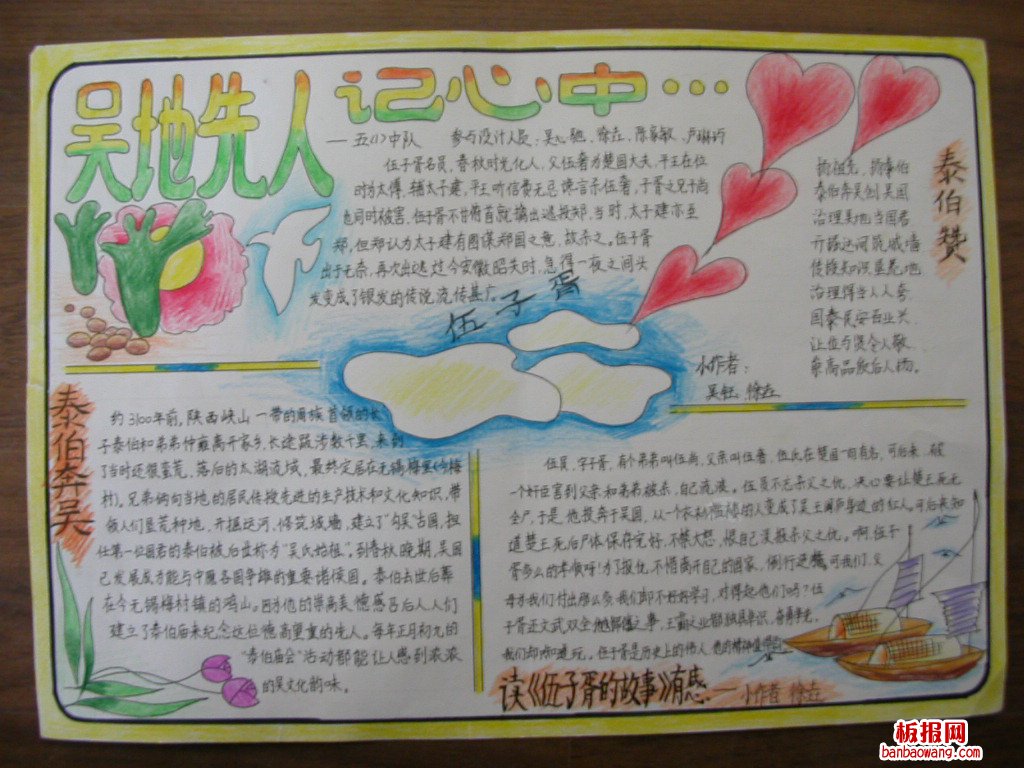 吴地先人记心中…
——五(1)中队 参与设计人员：吴心驰、徐垚、陈家敏、卢琳巧
伍子胥名员，春秋时先化人，父伍奢为楚国大夫，平王在位
时为太傅，辅太子建，平王听信费无忌谗言杀伍奢，子胥之兄子尚
也同时被害，伍子胥不甘俯首就擒出逃投郑，当时，太子建亦至
郑，但郑认为太子建有图谋郑国之意，故杀之。伍子胥
出于无奈，再次出逃，过今安徽昭关时，急得一夜之间头
发变成了银发的传说，流传甚广。
伍子胥
泰伯赞
扬祖先，扬泰伯
泰伯奔吴创吴国
治理吴地当国君
开疏运河筑城墙
传授知识垦荒地
治理得当人人夸
国泰民安百业兴
让位与贤令人敬
崇高品敬后人扬。
小作者：
吴钰 徐垚
泰伯奔吴
约3100年前，陕西岐山一带的周族首领的长
子泰伯和弟弟仲雍离开家乡，长途跋涉数千里，来到
了当时还很蛮荒、落后的太湖流域，最终定居在无锡梅里(今梅
村)。兄弟俩向当地的居民传授先进的生产技术和文化知识，带
领人们垦荒种地，开掘运河，修筑城墙，建立了“勾吴”古国，担
任第一位国君的泰伯被后世称为“吴氏始祖”。到春秋晚期，吴国
已发展成为能与中原各国争雄的重要诸侯国。泰伯去世后葬
在今无锡梅村镇的鸿山。因为他的崇高美德感召后人，人们
建立了泰伯庙来纪念这位德高望重的先人。每年正月初九的
“泰伯庙会”活动都能让人感到浓浓
的吴文化韵味。
伍员，字子胥，有个弟弟叫伍尚，父亲叫伍奢，伍氏在楚国一向有名，可后来，被
一个奸臣害到父亲和弟弟被杀，自己流浪。伍员不忘杀父之仇，决心要让楚王死无
全尸，于是，他投奔于吴国，从一个农村 的人变成了吴王阖庐身边的红人，可后来知
道楚王死后尸体保存完好，不禁大怒，恨自己没报杀父之仇。啊，伍子
胥多么的孝顺呀！为了报仇，不惜离开自己的国家，倒行逆施，可我们，父
母为我们付出那么多，我们却不好好学习，对得起他们吗？伍
子胥还文武双全，他
我们却 玩。伍子胥是历史上的伟人，他的精神值得
读《伍子胥的故事》有感
——小作者 徐垚
板报网
banbaowang.com